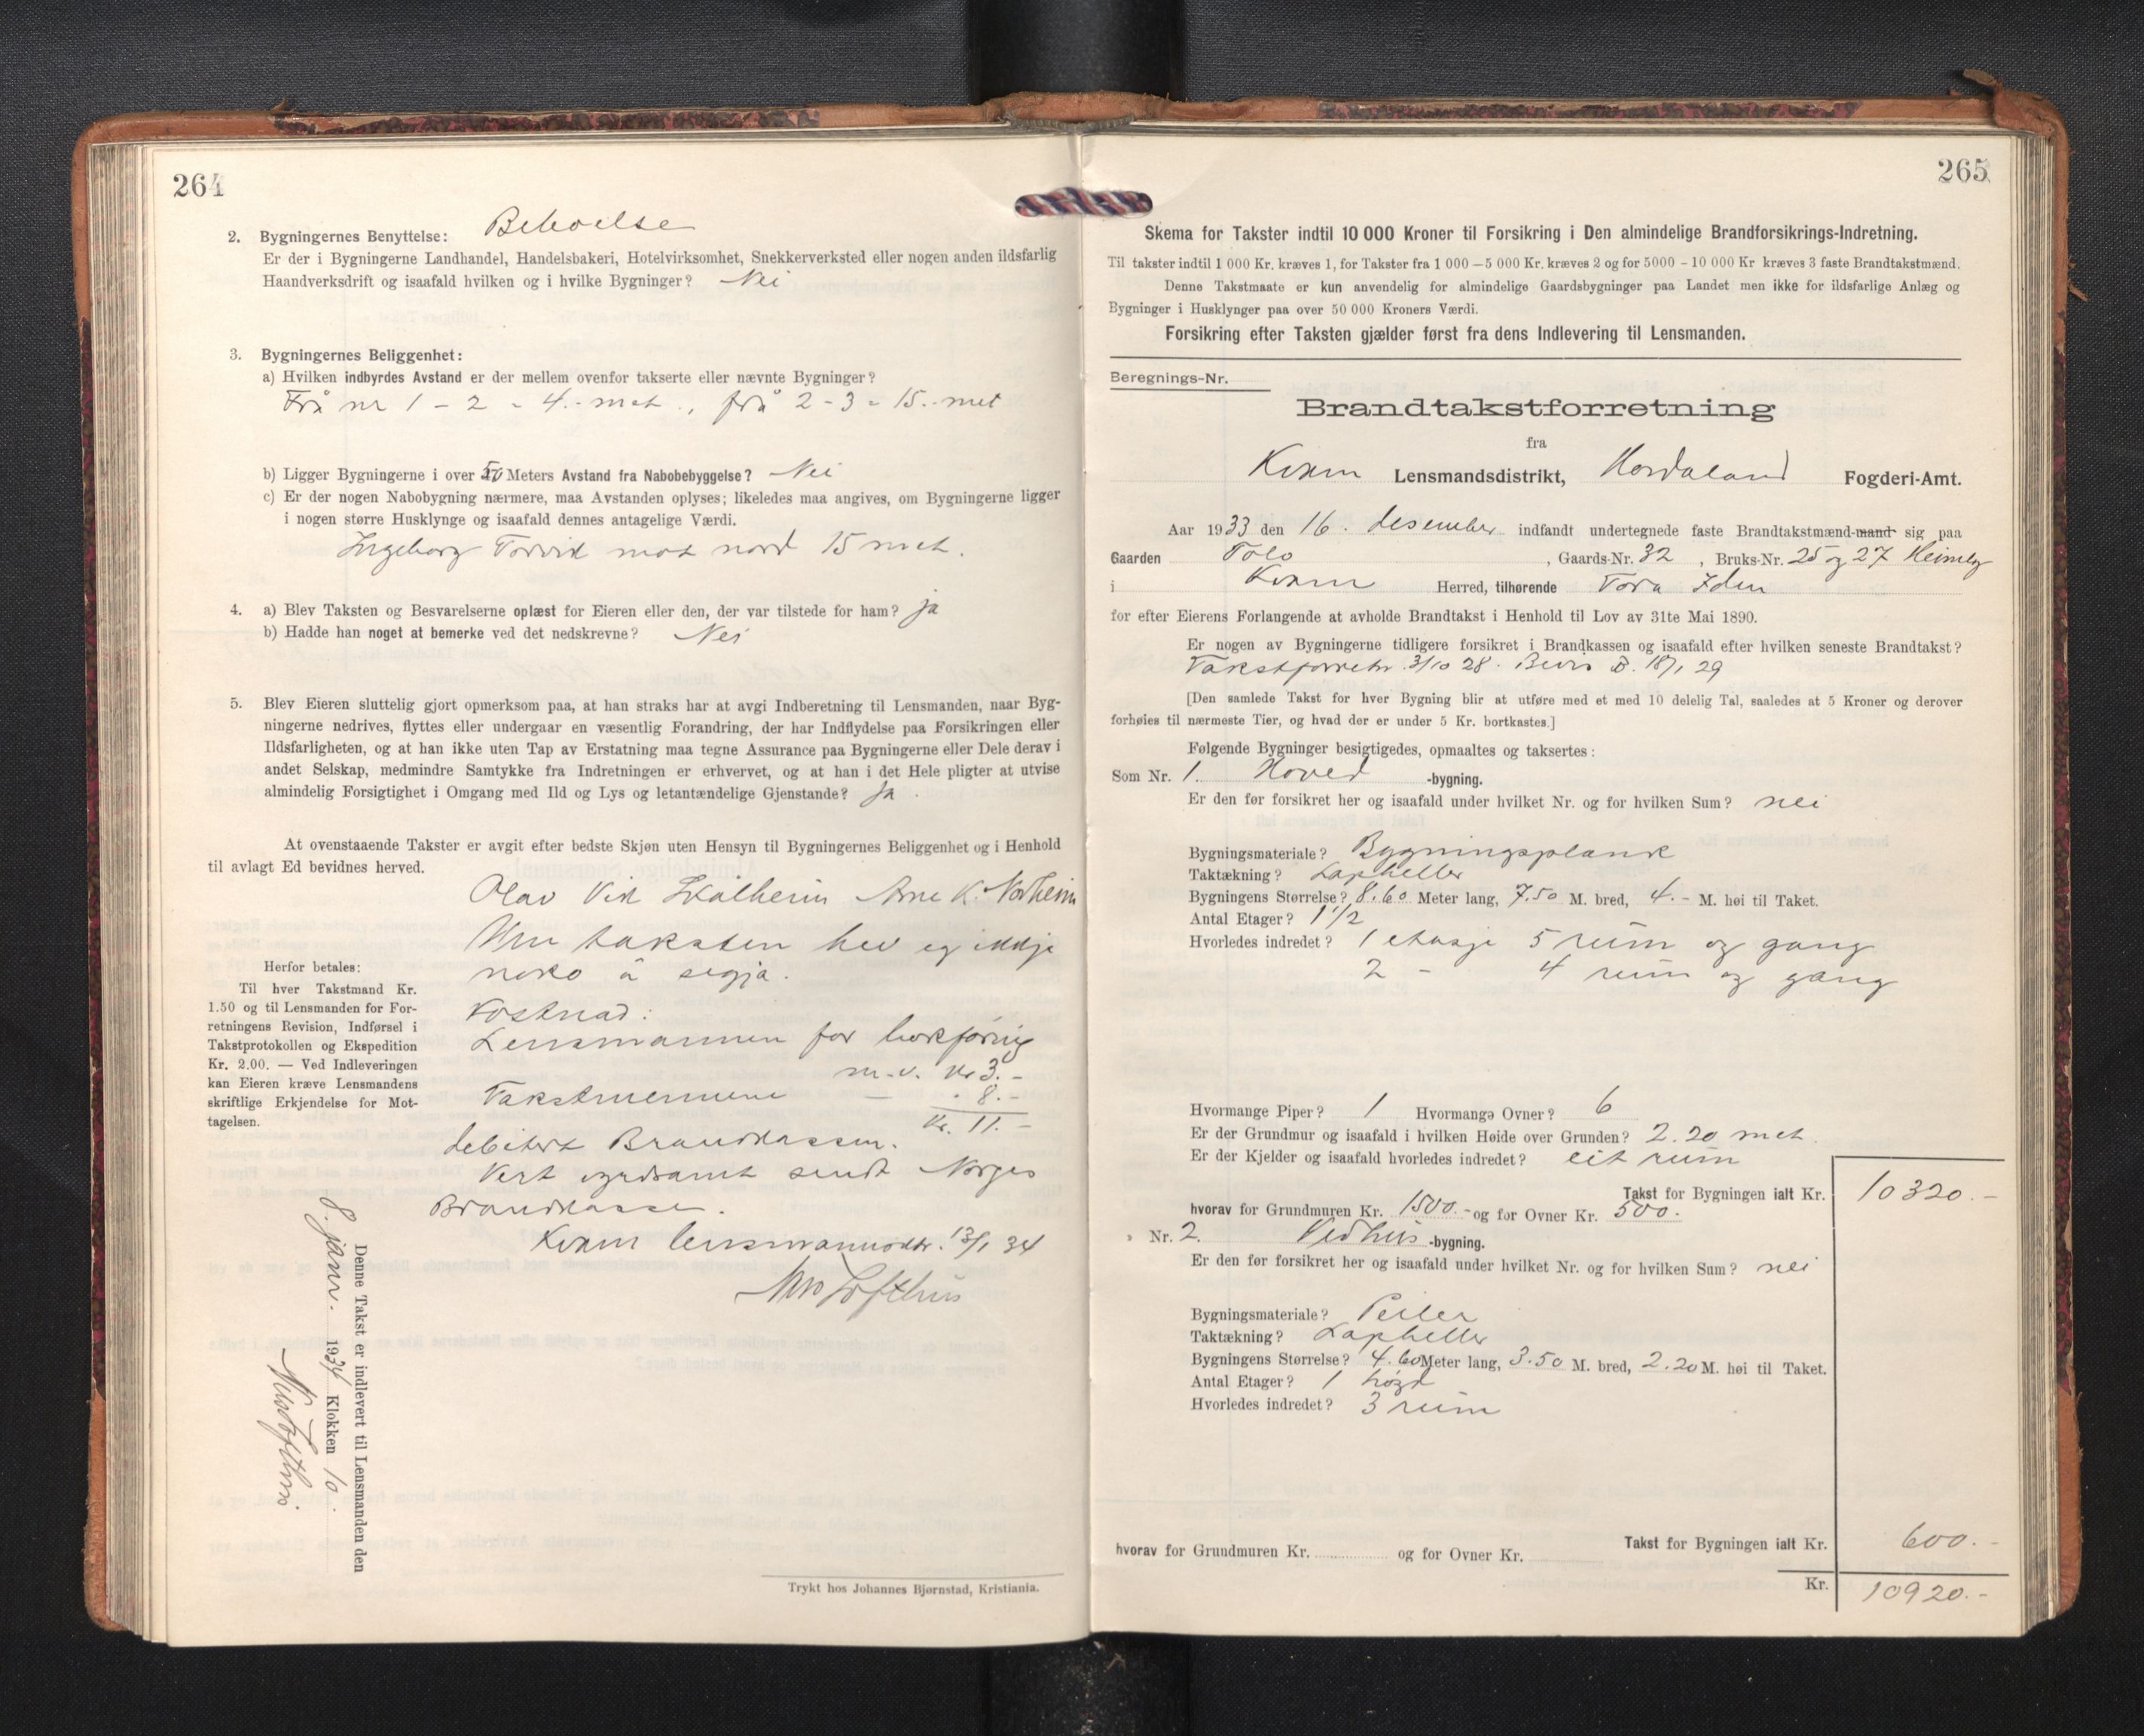 264
2. Bygningernes Benyttelse: Beboelse
Er der i Bygningerne Landhandel, Handelsbakeri, Hotelvirksomhet, Snekkerverksted eller nogen anden ildsfarlig
Haandverksdrift og isaafald hvilken og i hvilke Bygninger? Nei
3. Bygningernes Beliggenhet:
a) Hvilken indbyrdes Avstand er der mellem ovenfor takserte eller nævnte Bygninger?
Frå nr 1 - 2 = 4.- met., frå 2 - 3 = 15.- met
b) Ligger Bygningerne i over 50 Meters Avstand fra Nabobebyggelse? Nei
c) Er der nogen Nabobygning nærmere, maa Avstanden oplyses; likeledes maa angives, om Bygningerne ligger
i nogen større Husklynge og isaafald dennes antagelige Værdi.
Ingeborg Torvid mot nord 15 met.
4. a) Blev Taksten og Besvarelserne oplæst for Eieren eller den, der var tilstede for ham? ja
b) Hadde han noget at bemerke ved det nedskrevne? Nei
5. Blev Eieren sluttelig gjort opmerksom paa, at han straks har at avgi Indberetning til Lensmanden, naar Byg-
ningerne nedrives, flyttes eller undergaar en væsentlig Forandring, der har Indflydelse paa Forsikringen eller
Ildsfarligheten, og at han ikke uten Tap av Erstatning maa tegne Assurance paa Bygningerne eller Dele derav i
andet Selskap, medmindre Samtykke fra Indretningen er erhvervet, og at han i det Hele pligter at utvise
almindelig Forsigtighet i Omgang med Ild og Lys og letantændelige Gjenstande? Ja
At ovenstaaende Takster er avgit efter bedste Skjøn uten Hensyn til Bygningernes Beliggenhet og i Henhold
til avlagt Ed bevidnes herved.
Olav Vik Arne K. Nordheim
Um taksten hev eg ikkje
noko å segja.
Kostnad:
Lensmannen for bokføring
m.v. kr 3.-
Takstmennene - " 8.-
Kr. 11.-
debitert Brandkassen.
Vert sendt Norges
Brandkasse.
Kvam lensmannsktr. 13/1 34
Lofthus
Herfor betales:
Til hver Takstmand Kr.
1.50 og til Lensmanden for For-
retningens Revision, Indførsel i
Takstprotokollen og Ekspedition
Kr. 2.00. — Ved Indleveringen
kan Eieren kræve Lensmandens
skriftlige Erkjendelse for Mot-
tagelsen.
Denne Takst er indlevert til Lensmanden den
8. janr. 1934 Klokken 10.
Lofthus
Trykt hos Johannes Bjørnstad, Kristiania.
265
Skema for Takster indtil 10 000 Kroner til Forsikring i Den almindelige Brandforsikrings-Indretning.
Til takster indtil 1 000 Kr. kræves 1, for Takster fra 1 000 — 5 000 Kr. kræves 2 og for 5000 - 10 000 Kr kræves 3 faste Brandtakstmænd.
Denne Takstmaate er kun anvendelig for almindelige Gaardsbygninger paa Landet men ikke for ildsfarlige Anlæg og
Bygninger i Husklynger paa over 50 000 Kroners Værdi.
Forsikring efter Taksten gjælder først fra dens Indlevering til Lensmanden.
Beregnings-Nr.
Brandtakstforretning
fra
Kvam Lensmandsdistrikt, Hordaland Fogderi-Amt.
Aar 1933 den 16. desember indfandt undertegnede faste Brandtakstmænd-mand sig paa
Gaarden Tolo, Gaards-Nr. 32, Bruks-Nr. 25 og 27 Heimely
i Kvam Herred, tilhørende Tora Iden
for efter Eierens Forlangende at avholde Brandtakst i Henhold til Lov av 31te Mai 1890.
Er nogen av Bygningerne tidligere forsikret i Brandkassen og isaafald efter hvilken seneste Brandtakst?
Takstforretn. 3/10 28. Bevis B. 18/1 29
[Den samlede Takst for hver Bygning blir at utføre med et med 10 delelig Tal, saaledes at 5 Kroner og derover
forhøies til nærmeste Tier, og hvad der er under 5 Kr. bortkastes.]
Følgende Bygninger besigtigedes, opmaaltes og taksertes:
Som Nr. 1. Hoved -bygning.
Er den før forsikret her og isaafald under hvilket Nr. og for hvilken Sum? nei
Bygningsmateriale? Bygningsplank
Taktækning? Lapheller
Bygningens Størrelse? 8.60 Meter lang, 7.50 M. bred, 4.- M. høi til Taket.
Antal Etager? 1 1/2
Hvorledes indredet? 1 etasje 5 rum og gang
2 - 4 rum og gang
Hvormange Piper? 1 Hvormange Ovner? 6
Er der Grundmur og isaafald i hvilken Høide over Grunden? 2.20 met.
Er der Kjelder og isaafald hvorledes indredet? eit rum
Takst for Bygningen ialt Kr. 10320.-
hvorav for Grundmuren Kr. 1500.- og for Ovner Kr. 500.-
" Nr. 2. Vedhus -bygning.
Er den før forsikret her og isaafald under hvilket Nr. og for hvilken Sum? nei
Bygningsmateriale? Peiler
Taktækning? Lapheller
Bygningens Størrelse? 4.60 Meter lang, 3.50 M. bred, 2.20 M. høi til Taket.
Antal Etager? 1 høgd
Hvorledes indredet? 3 rum
Takst for Bygningen ialt Kr. 600.-
hvorav for Grundmuren Kr. og for Ovner Kr.
Kr. 10920.-